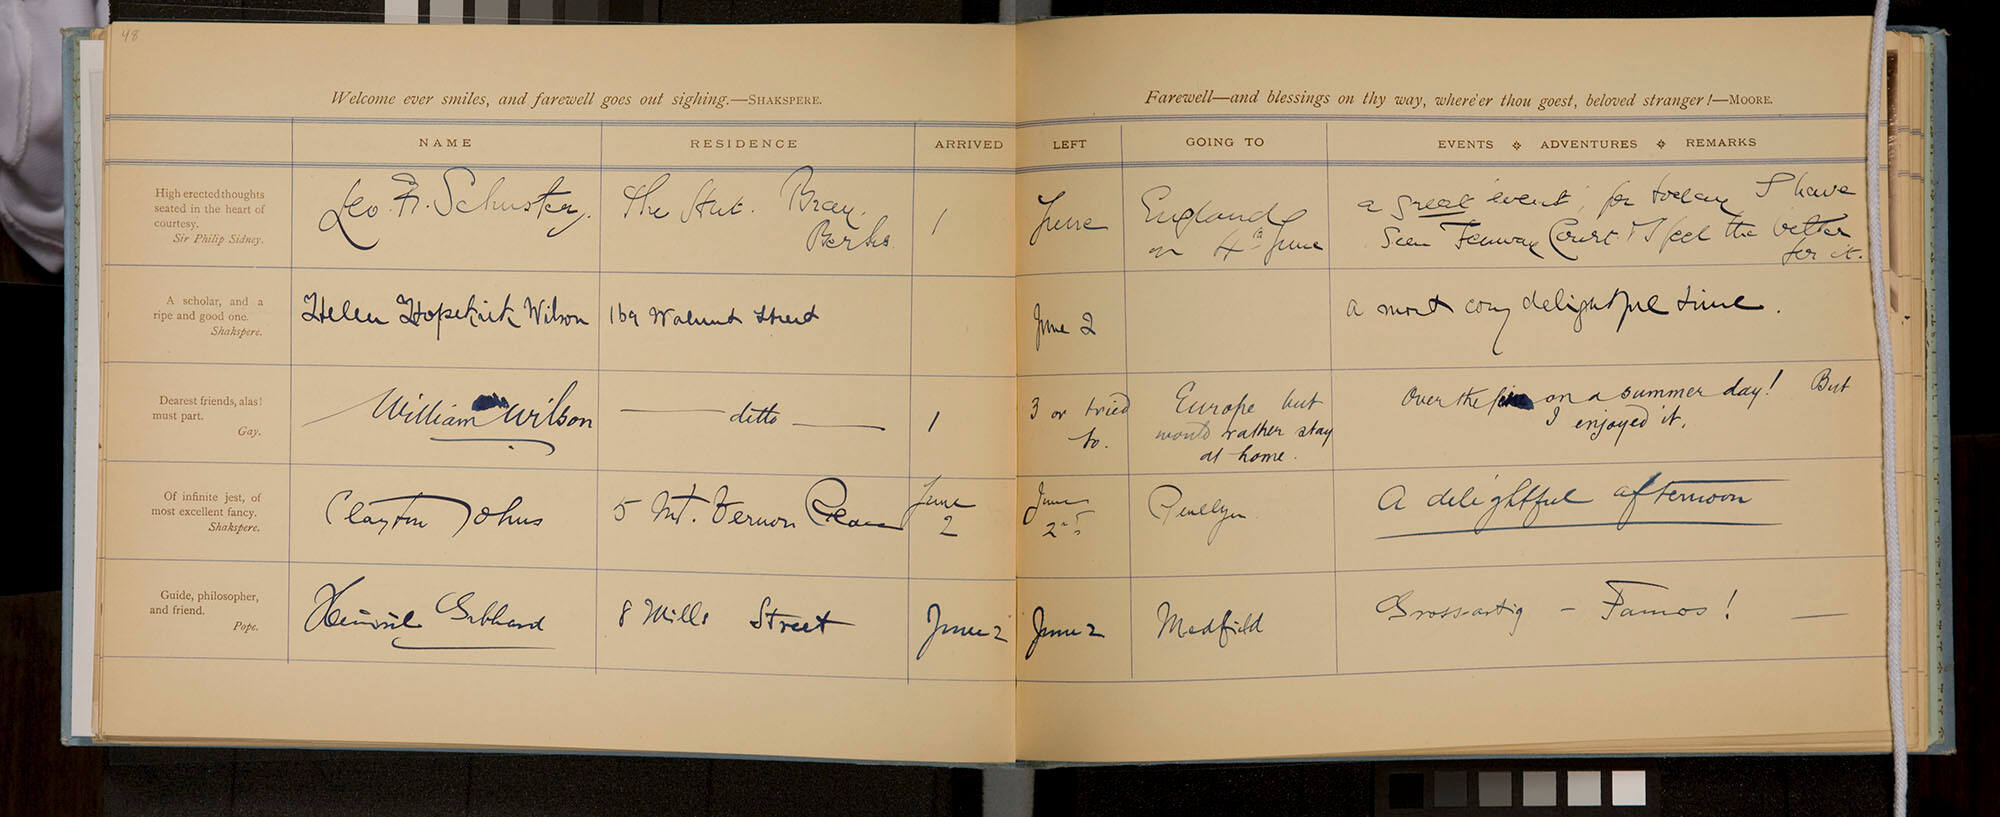 48
Welcome ever smiles, and farewell goes out sighing.—SHAKSPERE.
NAME RESIDENCE ARRIVED
High erected thoughts
seated in the heart of
courtesy.
Sir Philip Sidney.
Leo. F. Schuster. The Hut. Bray. 1
Berks.
A scholar, and a
ripe and good one.
Shakspere.
Helen Hopekirk Wilson 169 Walnut Street
Dearest friends, alas!
must part.
Gay.
William Wilson — ditto — 1
Of infinite jest, of
most excellent fancy.
Shakspere.
Clayton Johns 5 Mt. Vernon Place June
2
Guide, philosopher,
and friend.
Pope.
Heinrich Gebhard 8 Mills Street June 2
Farewell—and blessings on thy way, where'er thou goest, beloved stranger!—MOORE.
LEFT GOING TO EVENTS ADVENTURES REMARKS
June England
on 4th June
a great event, for today I have
seen Fenway Court. & I feel the better
for it.
June 2 a most cosy delightful time.
3 or tried
to.
Europe but
would rather stay
at home.
Over the on a summer day! But
I enjoyed it.
June
2nd
Penllyn
A delightful afternoon
June 2 Medfield Grossartig – Famos! —